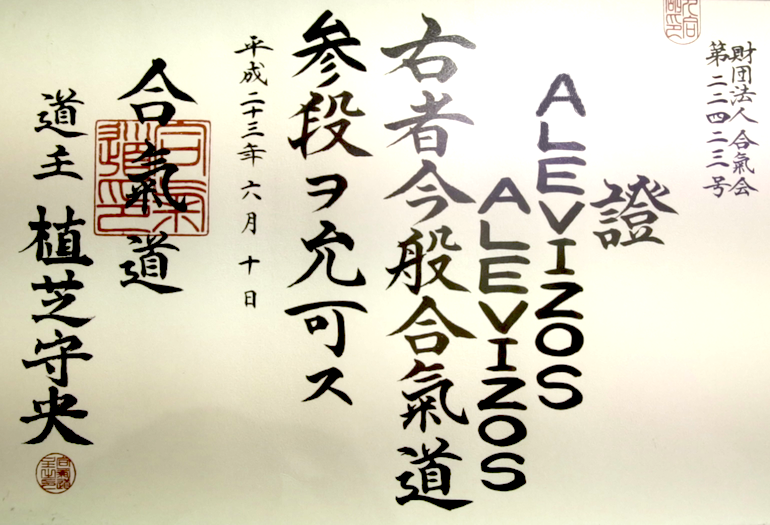 財団法人 合氣会
第二二四二三号
證
ALEVIZOS
ALEVIZOS
右者今般合氣道
参段ヲ允可ス
平成二十三年 六月 十日
合氣道
道主 植芝守央